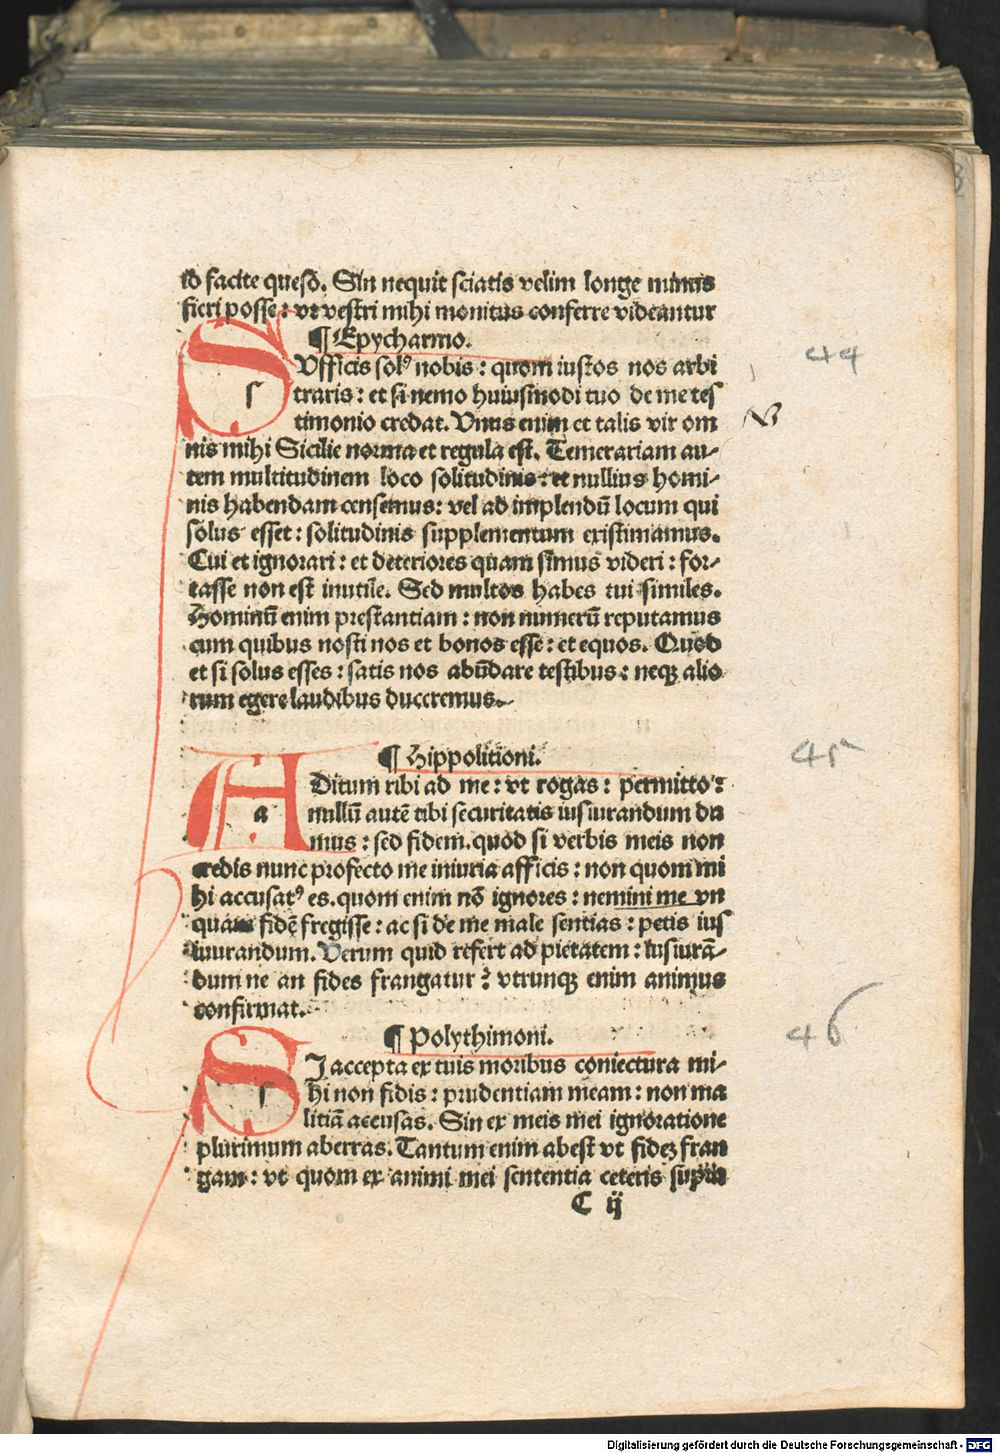 id facite quesō. Sin nequit sciatis velim longe minus
fieri posse: vt vestri mihi monitus conferre videantur
¶ Epycharmo.
44
SVfficis solꝰ nobis: quom iustos nos arbi
traris: et si nemo huiusmodi tuo de me tes
timonio credat. Vnus enim et talis vir om
nis mihi Sicilie norma et regula est. Temerariam au-
tem multitudinem loco solitudinis: et nullius homi-
nis habendam censemus: vel ad implendū locum qui
solus esset: solitudinis supplementum existimamus.
Cui et ignorari: et deteriores quam simus videri: for-
tasse non est inutile. Sed multos habes tui similes.
Hominū enim prestantiam: non numerū reputamus
cum quibus nosti nos et bonos esse: et equos. Quod
et si solus esses: satis nos abūdare testibus: neqꝫ alio
rum egere laudibus duceremus.
¶ Hippolitioni.
45
ADitum tibi ad me: vt rogas: permitto:
nullū autē tibi securitatis iusiurandum da
mus: sed fidem. quod si verbis meis non
credis nunc profecto me iniuria afficis: non quom mi
hi accusatꝰ es. quom enim nō ignores: nemini me vn
quam fidē fregisse: ac si de me male sentias: petis ius
iurandum. Verum quid refert ad pietatem: iusiurā-
dum ne an fides frangatur? vtrunqꝫ enim animus
confirmat.
¶ Polythimoni.
46
SI accepta ex tuis moribus coniectura mi-
hi non fidis: prudentiam meam: non ma
litiā accusas. Sin ex meis mei ignoratione
plurimum aberras. Tantum enim abest vt fideꝫ fran
gam: vt quom ex animi mei sententia ceteris
C ij
Digitalisierung gefördert durch die Deutsche Forschungsgemeinschaft - DFG